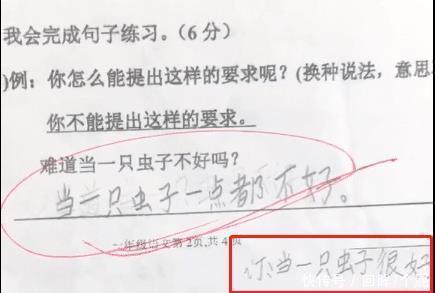 我会完成句子练习。(6分)
)例：你怎么能提出这样的要求呢？(换种说法，意思
你不能提出这样的要求。
难道当一只虫子不好吗？
当一只虫子一点都不好。
一年级语文第2页,共4页
当一只虫子很好
快传号